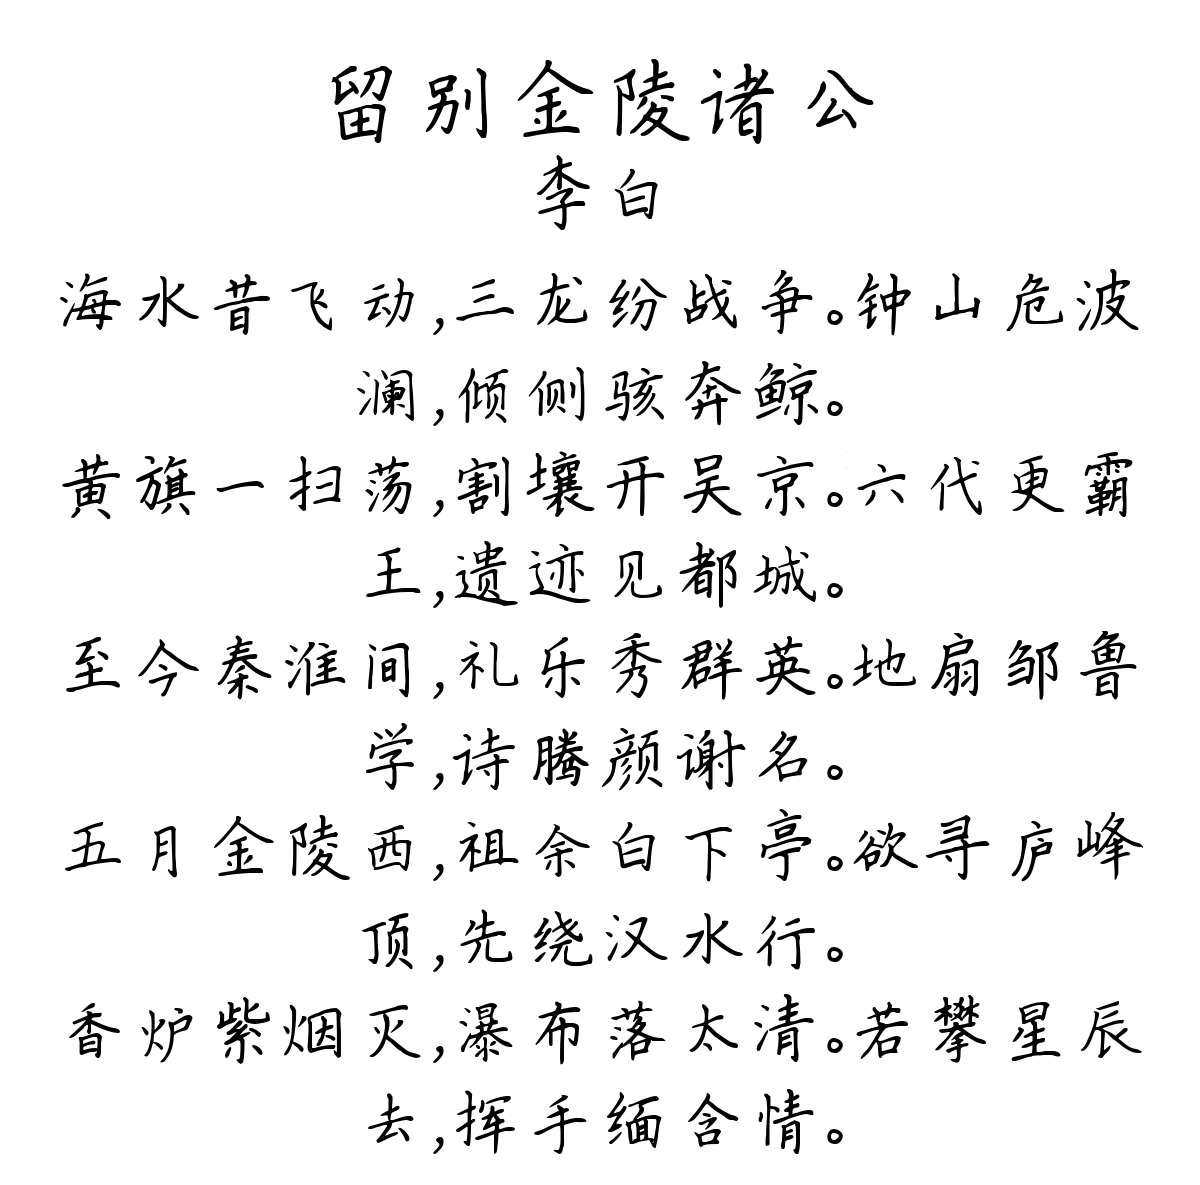 留别金陵诸公
李白
海水昔飞动,三龙纷战争。钟山危波
澜,倾侧骇奔鲸。
黄旗一扫荡,割壤开吴京。六代更霸
王,遗迹见都城。
至今秦淮间,礼乐秀群英。地扇邹鲁
学,诗腾颜谢名。
五月金陵西,祖余白下亭。欲寻庐峰
顶,先绕汉水行。
香炉紫烟灭,瀑布落太清。若攀星辰
去,挥手缅含情。